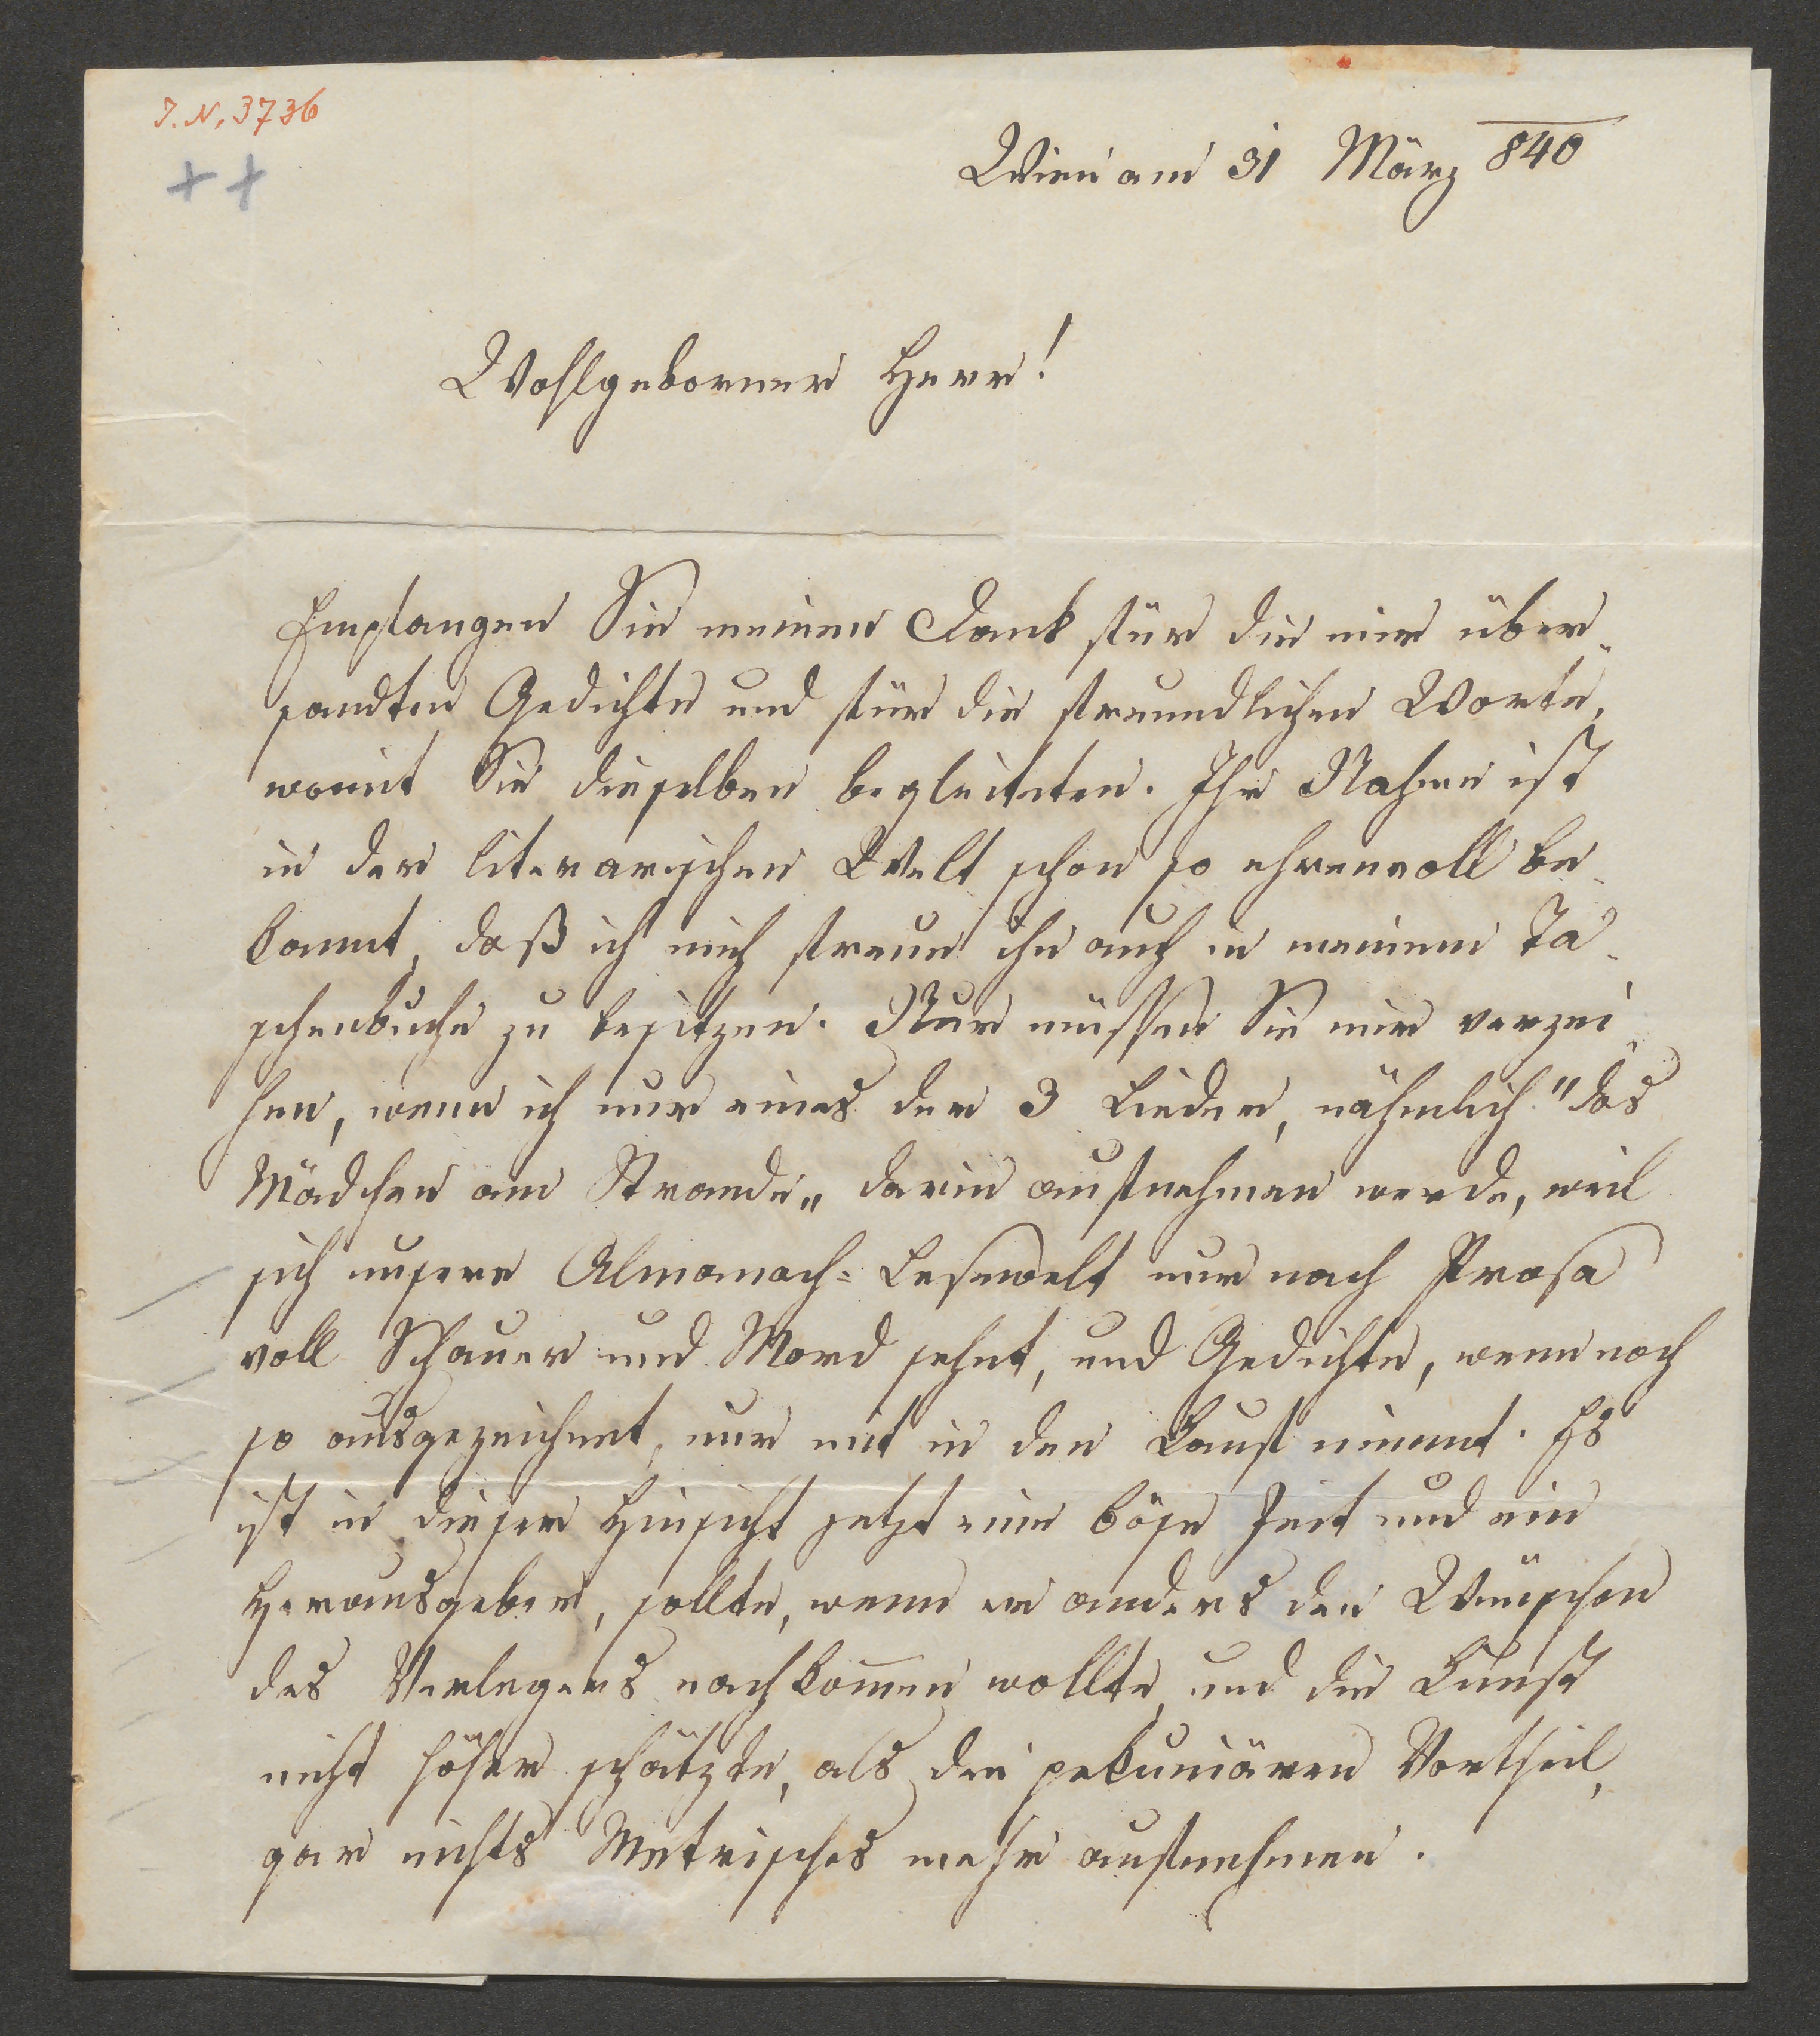 J. N. 3736
Wien am 31 März 840
Wohlgeborner Herr!
Empfangen Sie meinen Dank für die mir über-
sandten Gedichte und für die freundlichen Worte,
womit Sie dieselben begleiteten. Ihr Nahme ist
in der literarischen Welt schon so ehrenvoll be-
kannt, daß ich mich freue ihn auch in meinem Ta-
schenbuche zu besitzen. Nur müssen Sie mir verzei-
hen, wenn ich nur eines der 3 Lieder, nähmlich "das
Mädchen am Strande" darin aufnehmen werde, weil
sich unsere Almanach-Lesewelt nur nach Prosa
voll Schauer und Mord sehnt, und Gedichte, wenn noch
so ausgezeichnet, nur mit in den Kauf nimmt. Es
ist in dieser Hinsicht jetzt eine böse Zeit und ein
Herausgeber, sollte, wenn er anders den Wünschen
des Verlegers nachkommen wollte, und die Kunst
nicht höher schätzte, als den pekuniären Vortheil,
gar nichts Metrisches mehr aufnehmen.